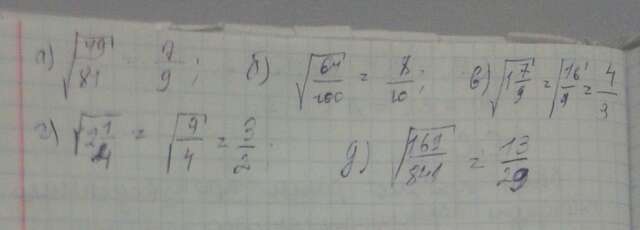 а) √49/81 = 7/9; б) √64/100 = 8/10; в) √1 7/9 = √16/9 = 4/3
г) √2 1/4 = √9/4 = 3/2. д) √169/841 = 13/29